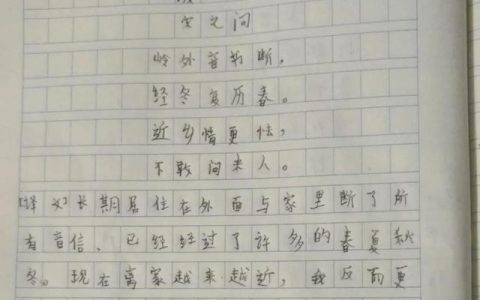 宋之问
岭外音书断，
经冬复历春。
近乡情更怯，
不敢问来人。
译文：长期居住在外面与家里断了所
有音信，已经经过了许多的春夏秋
冬。现在离家越来越近，我反而更